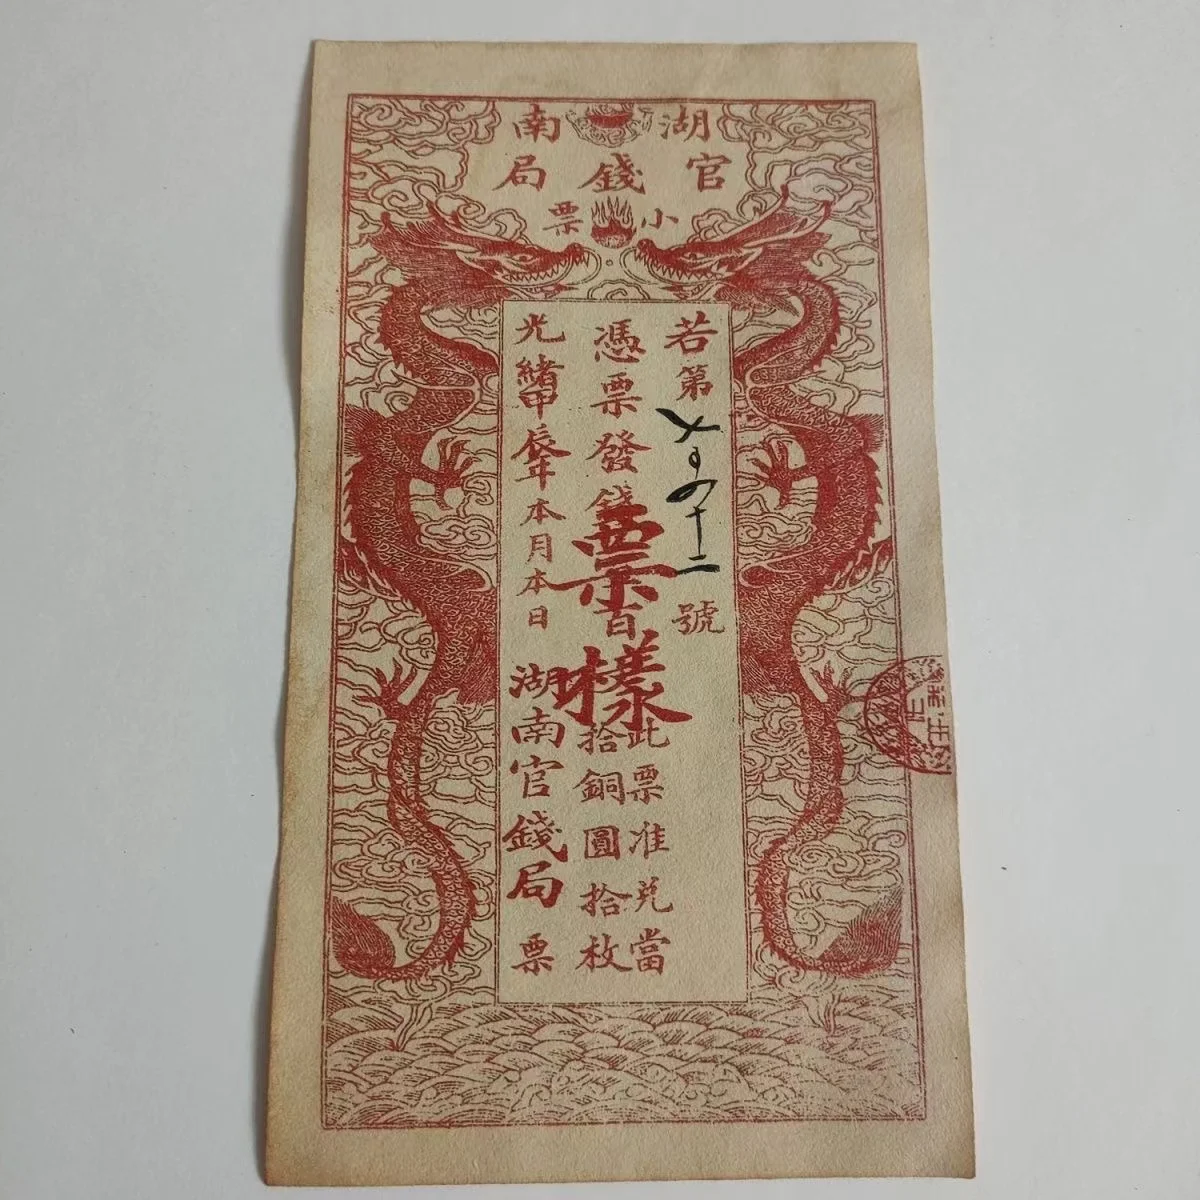 湖南
官錢局
小票
若第
號
憑票發錢
百
此票准兌當
拾銅圓拾枚
光緒甲辰年本月本日 湖南官錢局 票
票樣